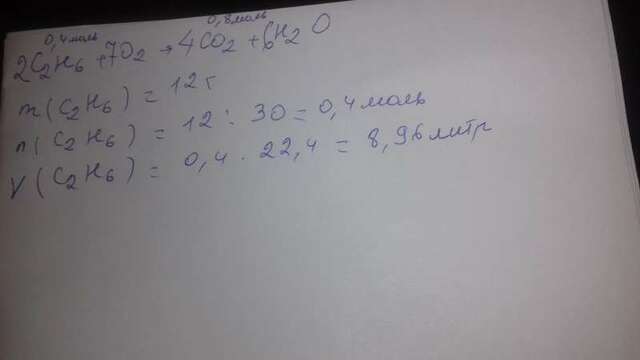 0,4 моль 0,8 моль
2C2H6 + 7O2 → 4CO2 + 6H2O
m(C2H6) = 12 г
n(C2H6) = 12 : 30 = 0,4 моль
V(C2H6) = 0,4 · 22,4 = 8,96 литр